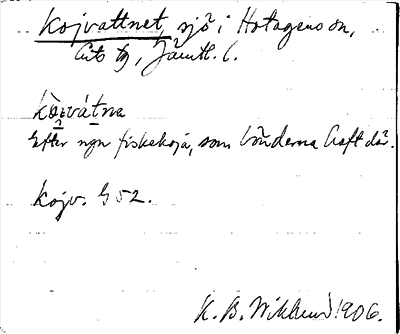 Kojvattnet, sjö i Hotagens sn,
Lits tg, Jämtl. l.
kòi̯vátna
Efter ngn fiskekoja, som bönderna haft där.
Kojv. G 52.
K. B. Wiklund 1906.